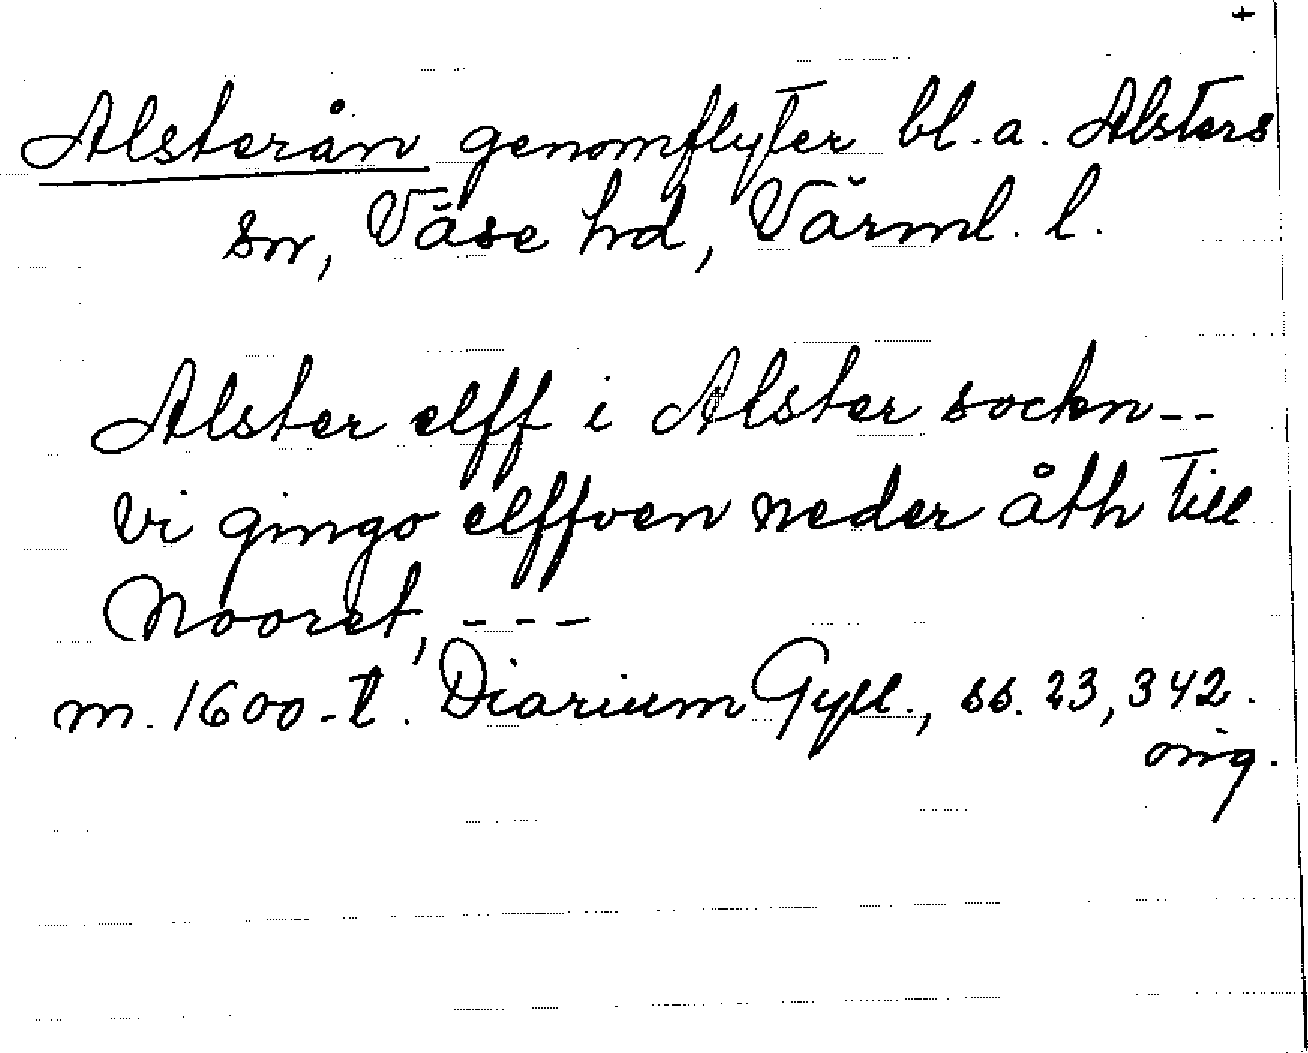 +
Alsterån genomflyter bl.a. Alsters
sn, Väse hd, Värml. l.
Alster elff i Alster sockn--
Vi gingo elffven neder åth till
Nooret, ---
m. 1600-t. Diarium Gyll., ss. 23, 342.
orig.